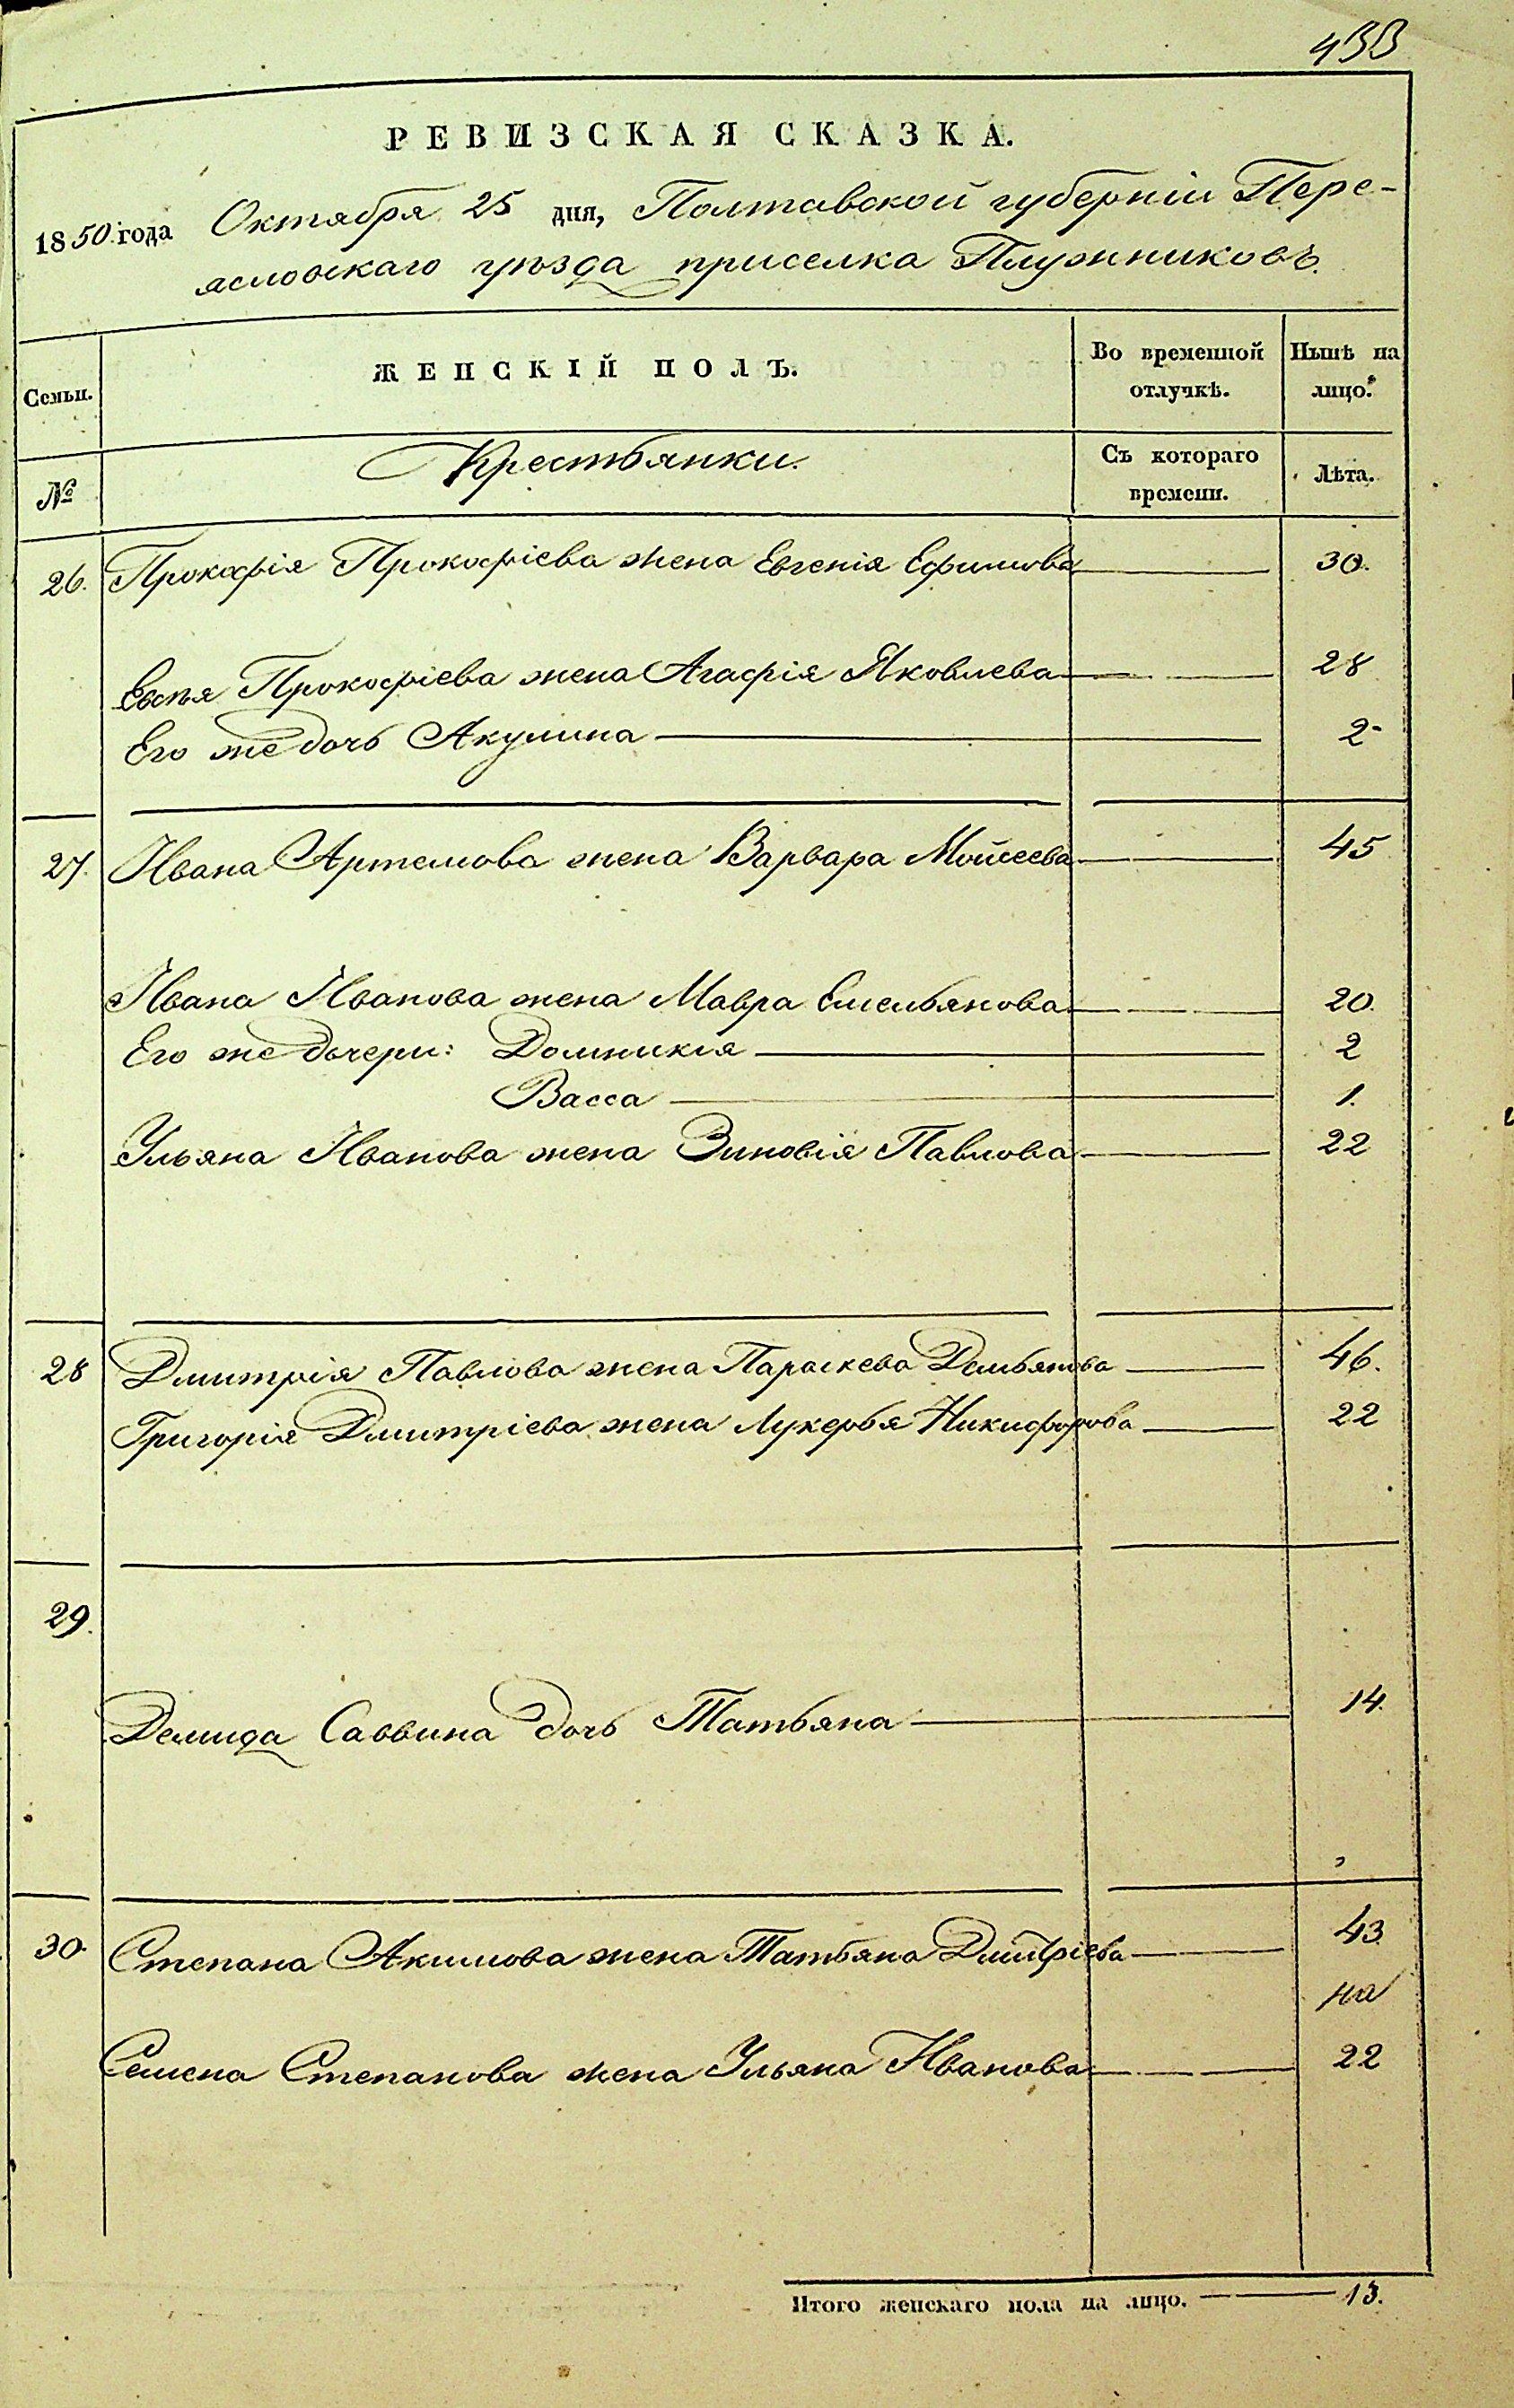 433
РЕВИЗСКАЯ СКАЗКА.
1850 года Октября 25 дня, Полтавской губерніи Пере-
яславскаго уѣзда приселка Плужниковъ.
Семьи.
ЖЕНСКІЙ ПОЛЪ.
Во временной отлучкѣ.
Нынѣ на лицо.
№
Крестьянки.
Съ котораго времени.
Лѣта.
26. Прокофія Прокофіева жена Евгенія Ефимова 30.
Прокофіева жена Агафія Яковлева 28
Его же дочь Акулина 2
27. Ивана Артемова жена Варвара Мойсеева 45
Ивана Иванова жена Мавра Емельянова 20.
Его же дочери: Домникія 2
Васса 1.
Ульяна Иванова жена Зиновія Павлова 22
28 Дмитрія Павлова жена Параскева Демьянова 46.
Григорія Дмитріева жена Лукерья Никифорова 22
29.
Демида Саввина дочь Татьяна 14.
30. Степана Акимова жена Татьяна Дмитріева 43
на
Семена Степанова жена Ульяна Иванова 22
Итого женскаго пола на лицо. 13.